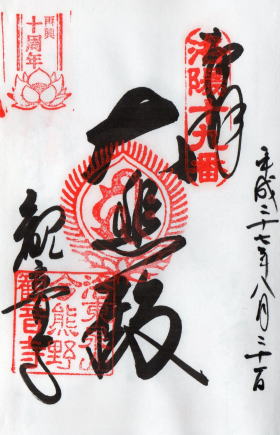 奉拝
洛陽十九番
平成二十七年八月二十一日
大悲殿
観音寺
再興
十周年
今熊野
觀音寺